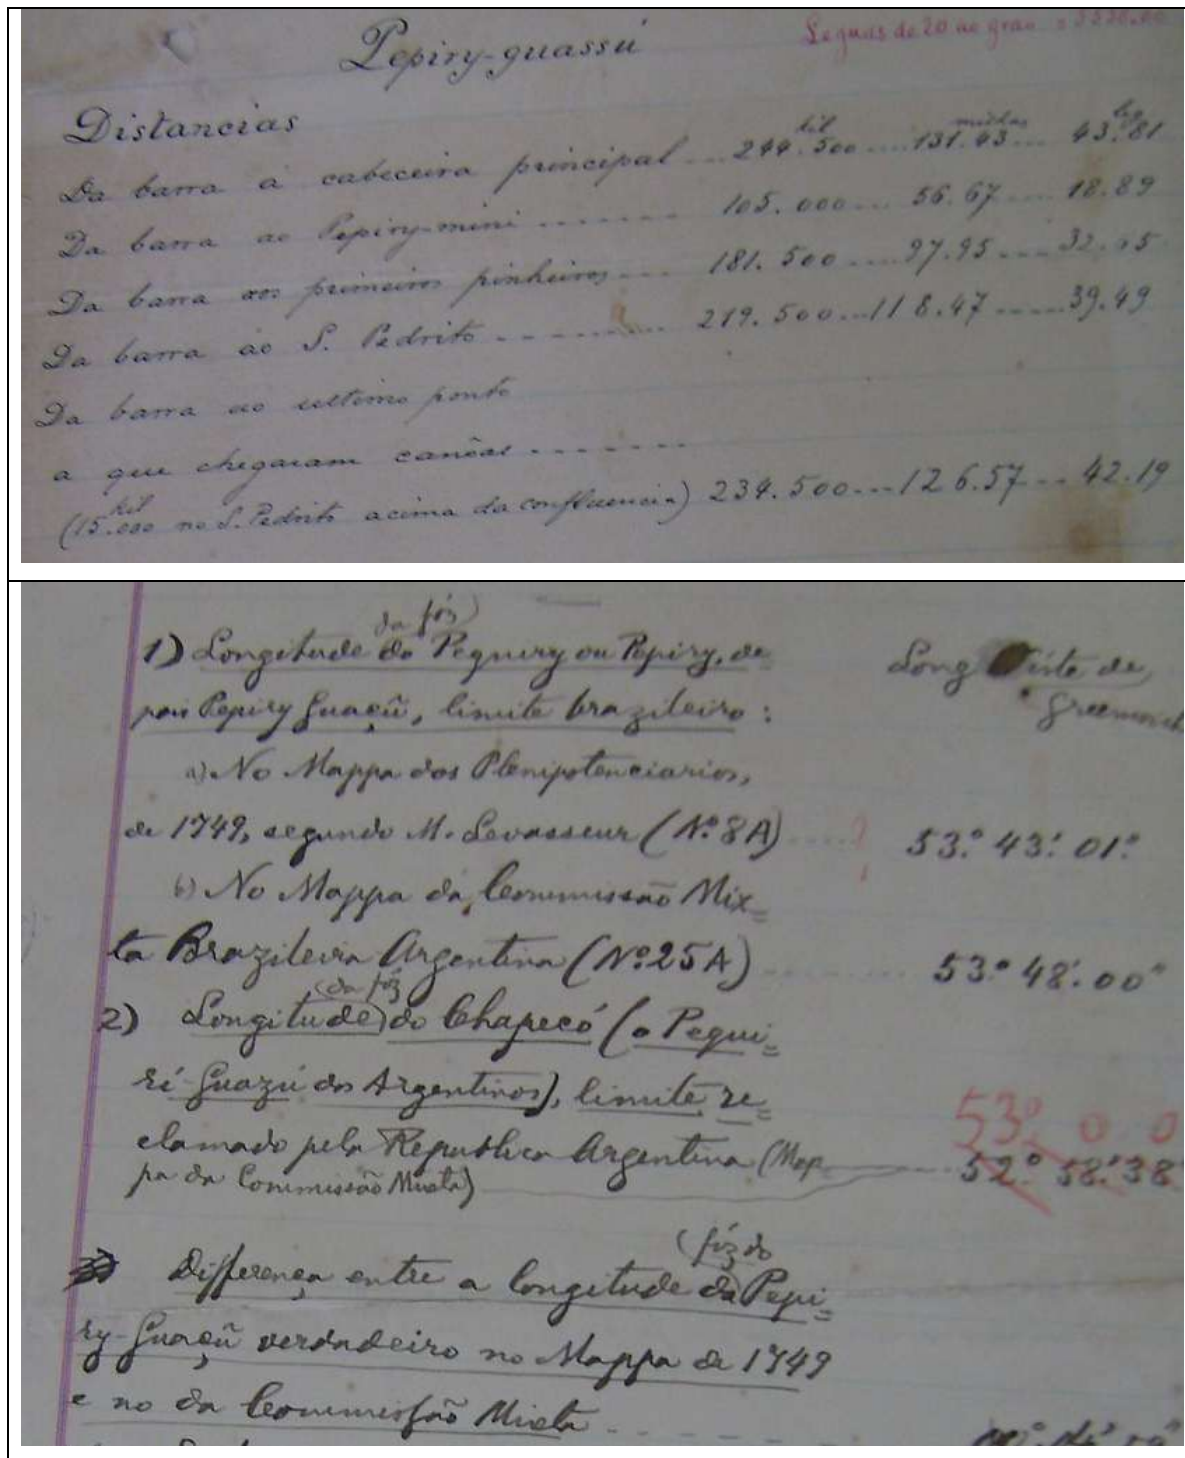 Pepiry-guassú
Leguas de 20 ao grau
Distancias
kil milhas leg
Da barra á cabeceira principal ... 244.500 .... 131.93 ... 43.81
Da barra ao Pepiry-mini ....... 105.000 ... 56.67 .... 18.89
Da barra aos primeiros pinheiros ... 181.500 .... 97.95 .... 32.65
Da barra ao S. Pedrito ......... 219.500 ... 118.47 ..... 39.49
Da barra ao ultimo ponto
a que chegaram canôas .......
(15.000 kil no S. Pedrito acima da confluencia) 234.500 ... 126.57 ... 42.19
1) Longitude da fóz do Pequiry ou Pepiry, de
pois Pepiry Guaçũ, limite brazileiro:
Long Oéste de
Greenwich
a) No Mappa dos Plenipotenciarios,
de 1749, segundo M. Levasseur (Nº 8A) ..... ? 53.º 43.' 01."
b) No Mappa da Commissão Mix=
ta Brazileira Argentina (Nº 25A) ........ 53º 48.' 00"
2) Longitude (da fóz) do Chapecó (o Pequi=
rí-Guazú dos Argentinos), limite re=
clamado pela Republica Argentina (Map
53º 0 0
pa da Commissão Mixta) 52.º 58.' 38
3) Differença entre a longitude da (fóz do Pepi=
ry-Guaçũ verdadeiro no Mappa de 1749
e no da Commissão Mixta